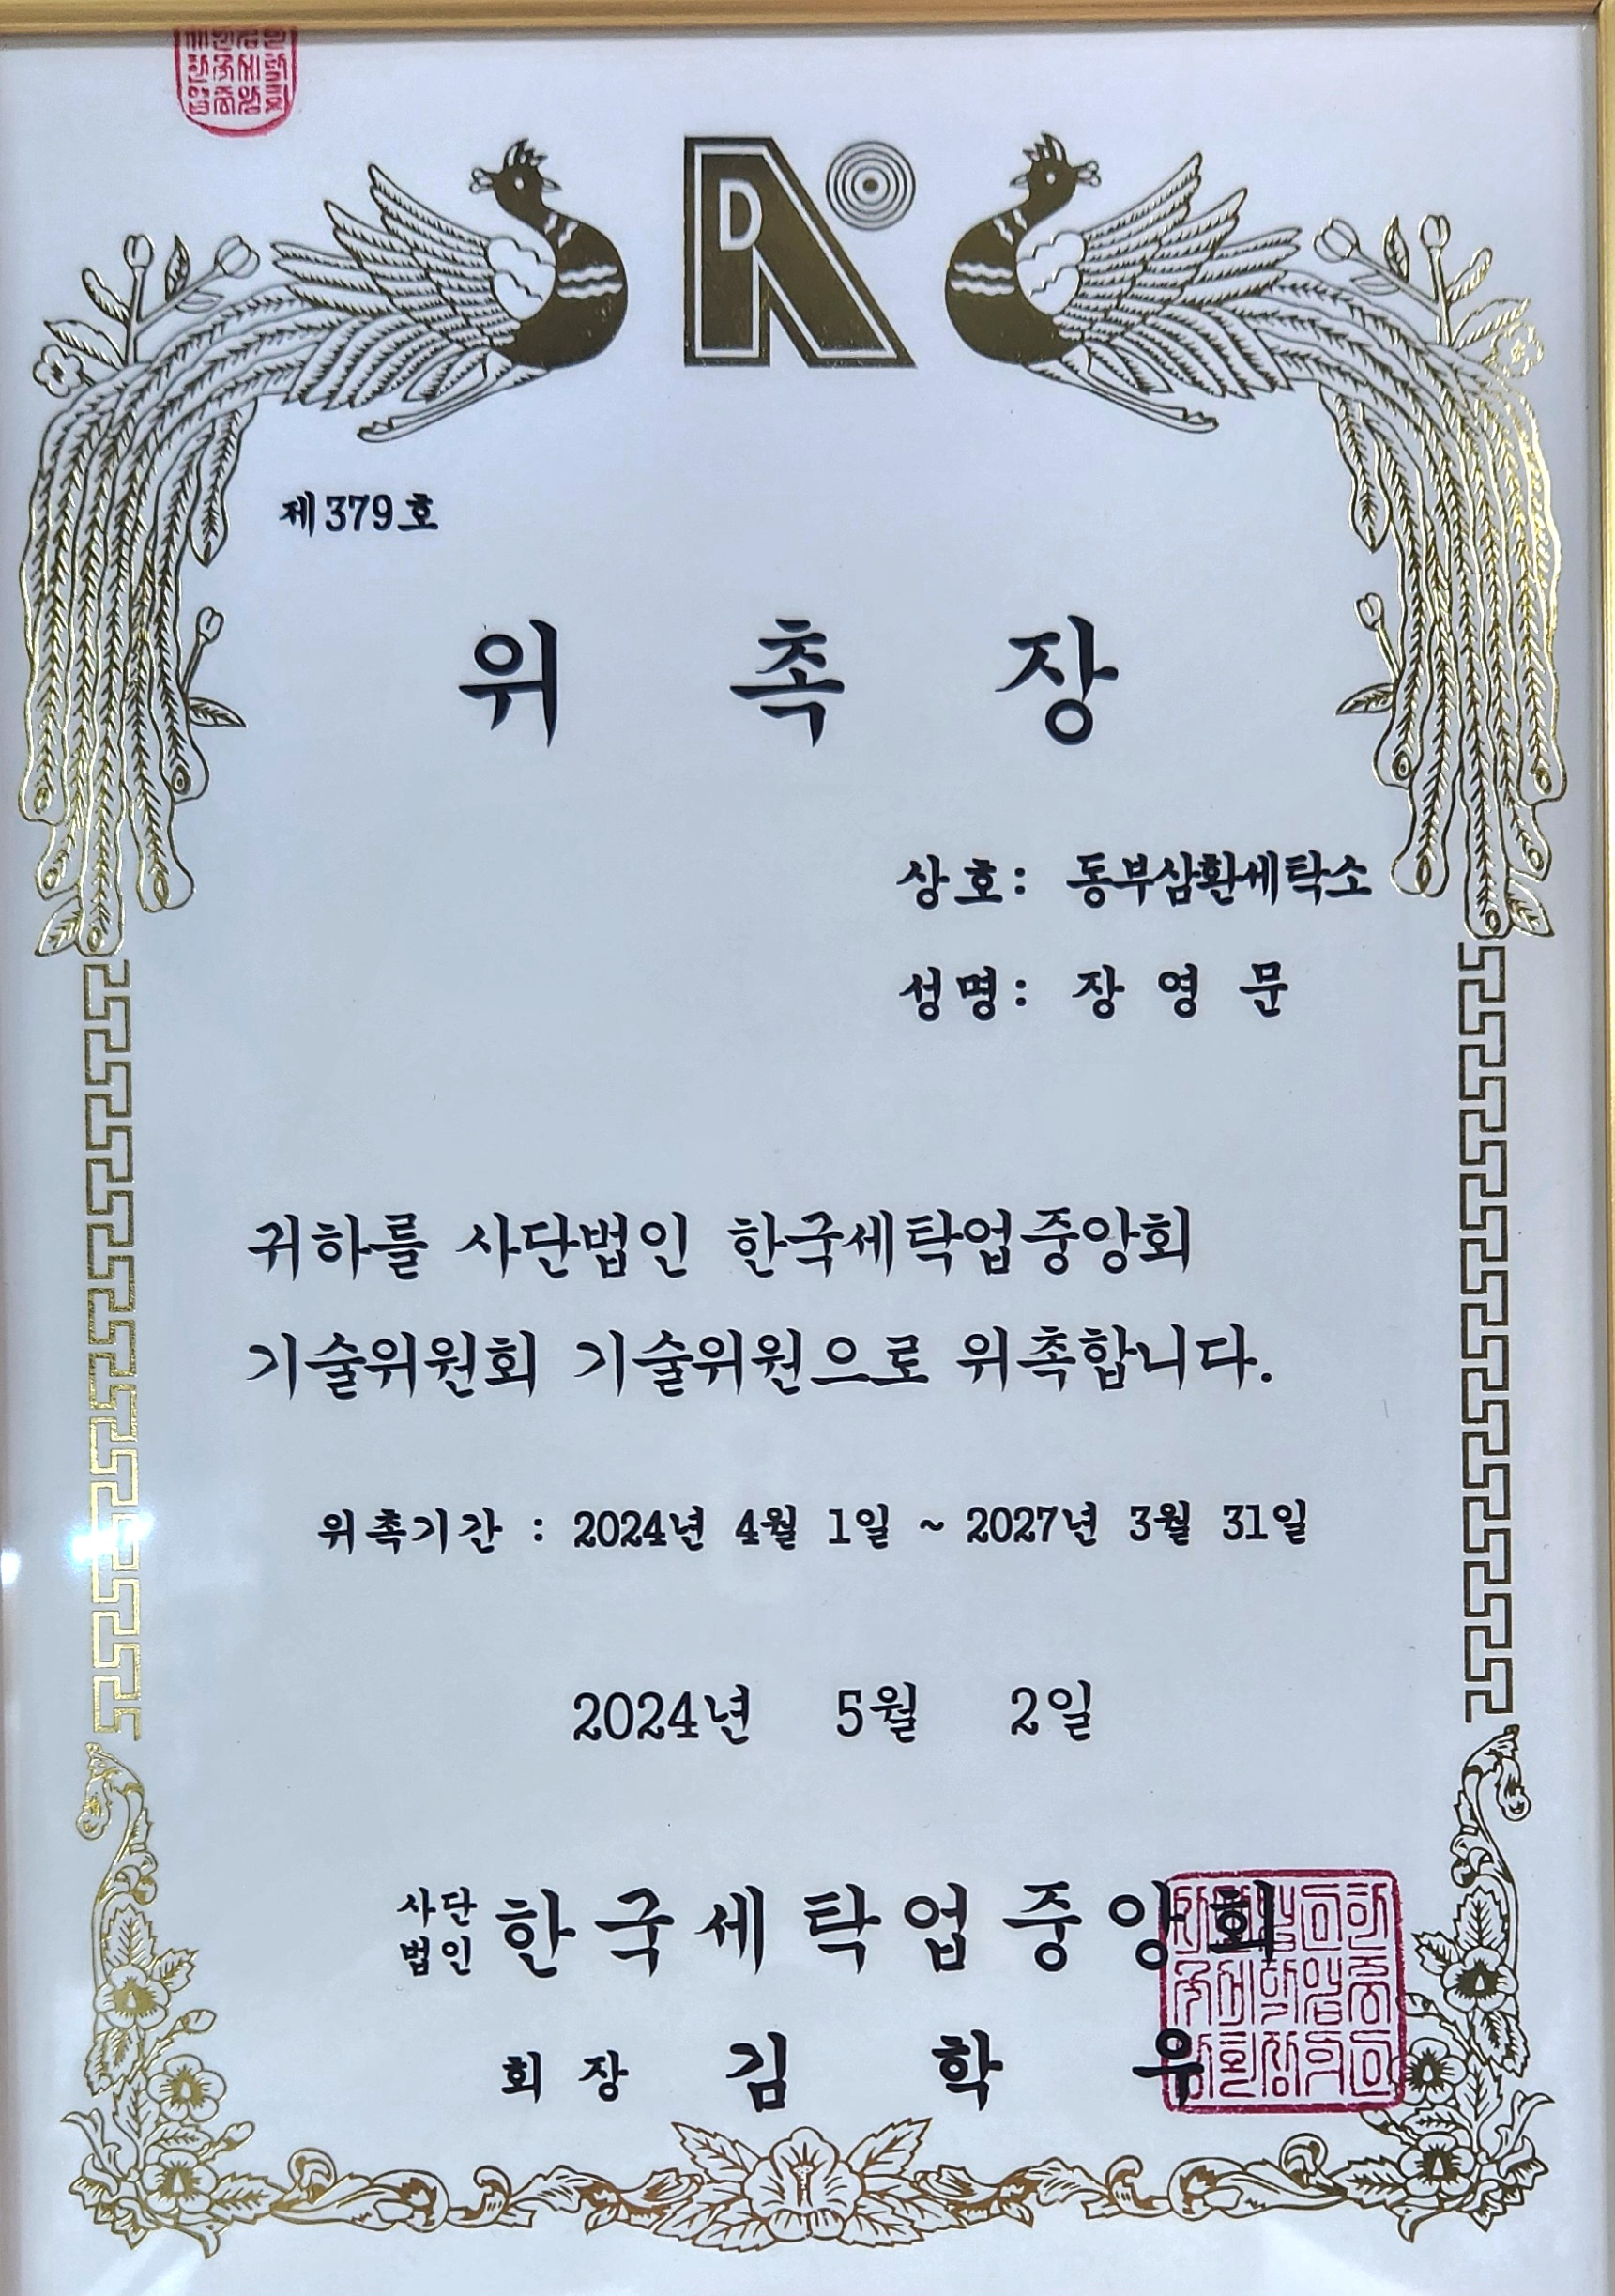 D
제379호
위 촉 장
상호: 동부삼환세탁소
성명: 장 영 문
귀하를 사단법인 한국세탁업중앙회
기술위원회 기술위원으로 위촉합니다.
위촉기간 : 2024년 4월 1일 ~ 2027년 3월 31일
2024년 5월 2일
사단법인 한국세탁업중앙회
회장 김 학 우